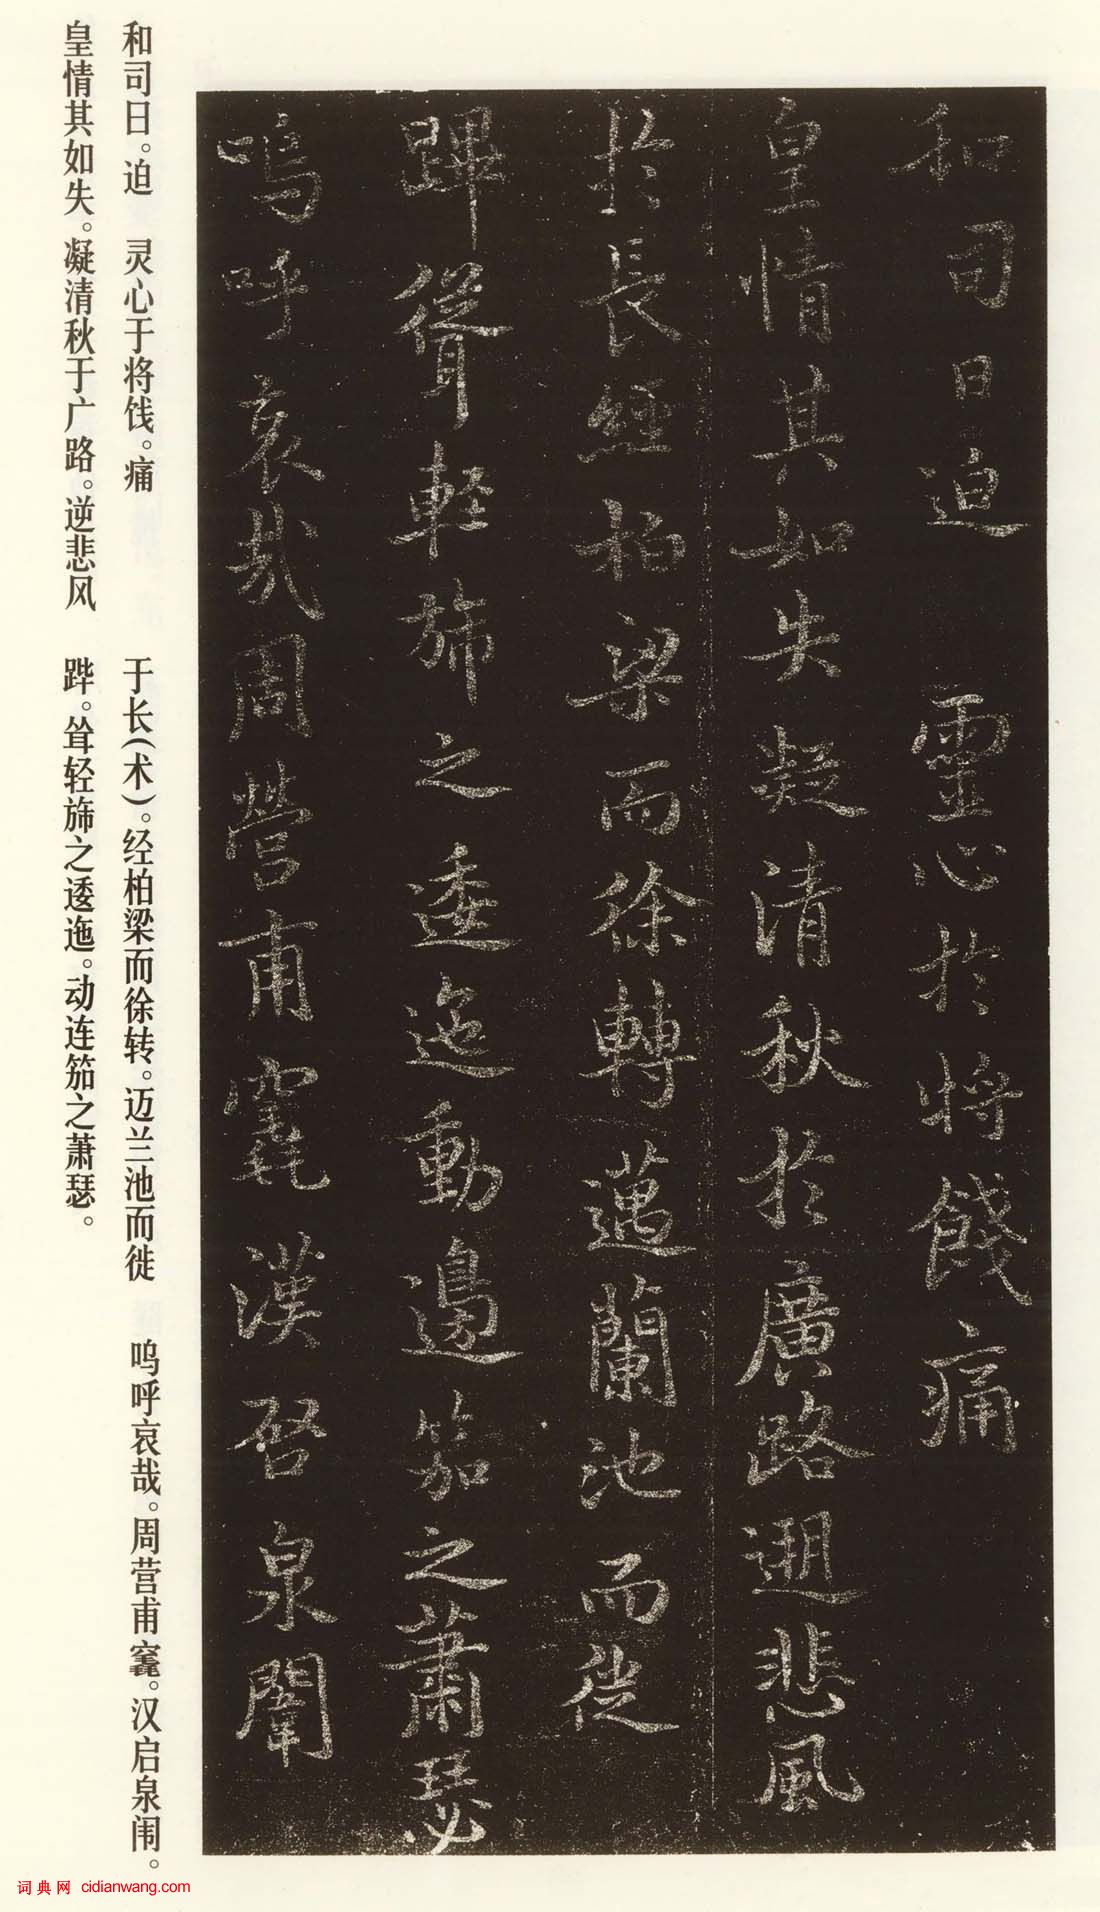 和司日迫　靈心於將餞痛
皇情其如失凝清秋於廣路遡悲風
於長經柏梁而徐轉邁蘭池而徙
蹕聳輕旆之逶迤動邊笳之蕭瑟
嗚呼哀哉周營甫窆漢啓泉闈
和司日。迫　灵心于将饯。痛
皇情其如失。凝清秋于广路。逆悲风
于长(术)。经柏梁而徐转。迈兰池而徙
跸。耸轻旆之逶迤。动连笳之萧瑟。
呜呼哀哉。周营甫窆。汉启泉闱。
词典网 cidianwang.com